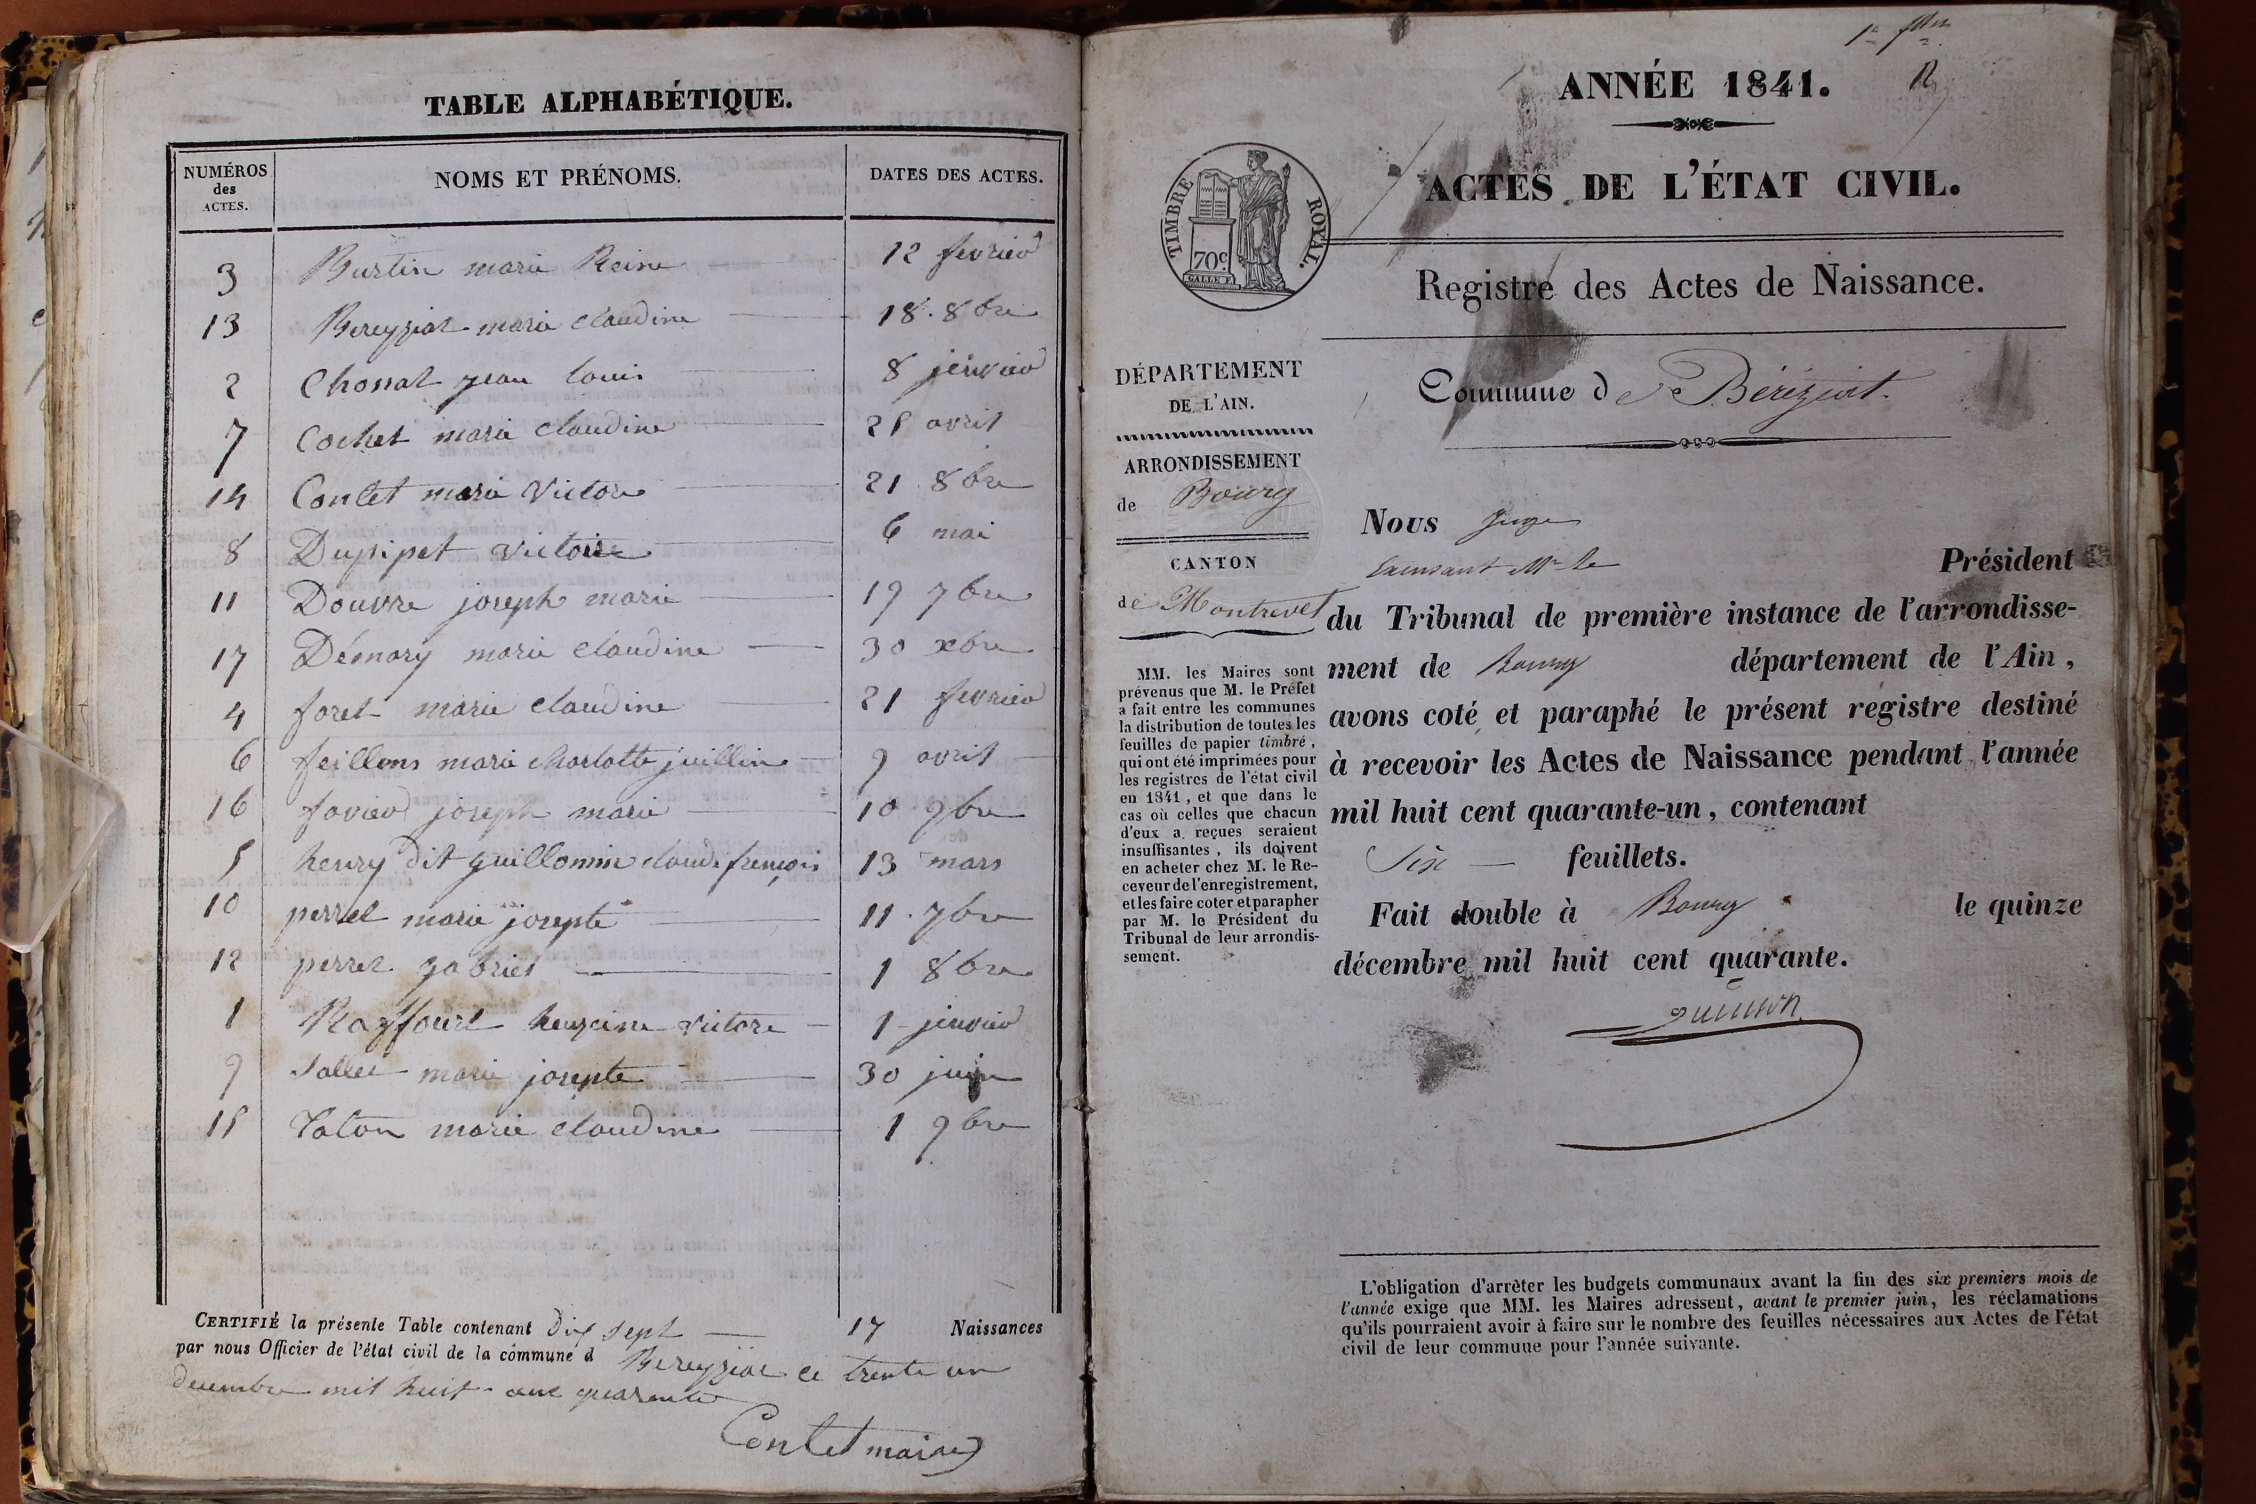 TABLE ALPHABÉTIQUE.
NUMÉROS des ACTES. NOMS ET PRÉNOMS. DATES DES ACTES.
3 Burtin marie Reine 12 fevrier
13 Bereyziat marie claudine 18. 8bre
2 Chossat jean louis 8 jenvier
7 Cochet marie claudine 25 avril
14 Contet marie Victore 21 8bre
8 Dupipet victoire 6 mai
11 Douvre joseph marie 19 7bre
17 Démary marie claudine 30 xbre
4 foret marie claudine 21 fevrier
6 feillens marie charlotte juilline 9 avril
16 favier joseph marie 10 9bre
5 henry dit guillomin claude françois 13 mars
10 perret marie josepte 11. 7bre
12 perret gabriel 1 8bre
1 Raffourt victore 1 jenvier
9 Sallet marie josepte 30 juin
15 Vaton marie claudine 1 9bre
CERTIFIÉ la présente Table contenant Dix sept 17 Naissances
par nous Officier de l'état civil de la commune d Bereyziat ce trente un
decembre mil huit cent quarente
Contet maire
1er
R
ANNÉE 1841.
ACTES DE L'ÉTAT CIVIL.
TIMBRE ROYAL.
70c
Registre des Actes de Naissance.
DÉPARTEMENT
DE L'AIN.
ARRONDISSEMENT
de Bourg
CANTON
de Montrevel
MM. les Maires sont
prévenus que M. le Préfet
a fait entre les communes
la distribution de toutes les
feuilles de papier timbré,
qui ont été imprimées pour
les registres de l'état civil
en 1841, et que dans le
cas où celles que chacun
d'eux a reçues seraient
insuffisantes, ils doivent
en acheter chez M. le Re-
ceveur de l'enregistrement,
et les faire coter et parapher
par M. le Président du
Tribunal de leur arrondis-
sement.
Commune de Béréziat.
Nous Juge
Mr le Président
du Tribunal de première instance de l'arrondisse-
ment de Bourg département de l'Ain,
avons coté et paraphé le présent registre destiné
à recevoir les Actes de Naissance pendant l'année
mil huit cent quarante-un, contenant
Six feuillets.
Fait double à Bourg le quinze
décembre mil huit cent quarante.
L'obligation d'arrêter les budgets communaux avant la fin des six premiers mois de
l'année exige que MM. les Maires adressent, avant le premier juin, les réclamations
qu'ils pourraient avoir à faire sur le nombre des feuilles nécessaires aux Actes de l'état
civil de leur commune pour l'année suivante.